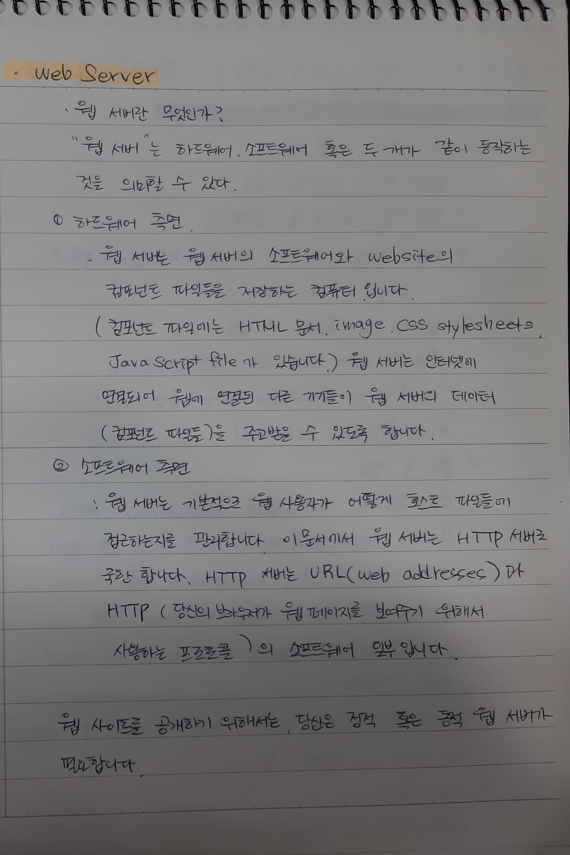 · Web Server
· 웹 서버란 무엇인가?
"웹 서버"는 하드웨어, 소프트웨어 혹은 두 개가 같이 동작하는
것을 의미할 수 있다.
① 하드웨어 측면.
: 웹 서버는 웹 서버의 소프트웨어와 website의
컴포넌트 파일들을 저장하는 컴퓨터 입니다.
( 컴포넌트 파일에는 HTML 문서, image, CSS stylesheets,
JavaScript file가 있습니다.) 웹 서버는 인터넷에
연결되어 웹에 연결된 다른 기기들이 웹 서버의 데이터
(컴포넌트 파일들)을 주고받을 수 있도록 합니다.
② 소프트웨어 측면
: 웹 서버는 기본적으로 웹 사용자가 어떻게 호스트 파일들에
접근하는지를 관리합니다. 이문서에서 웹 서버는 HTTP 서버로
국한 합니다. HTTP 서버는 URL(web addresses)과
HTTP ( 당신의 브라우저가 웹 페이지를 보여주기 위해서
사용하는 프로토콜 )의 소프트웨어 일부 입니다.
웹 사이트를 공개하기 위해서는, 당신은 정적 혹은 동적 웹 서버가
필요합니다.